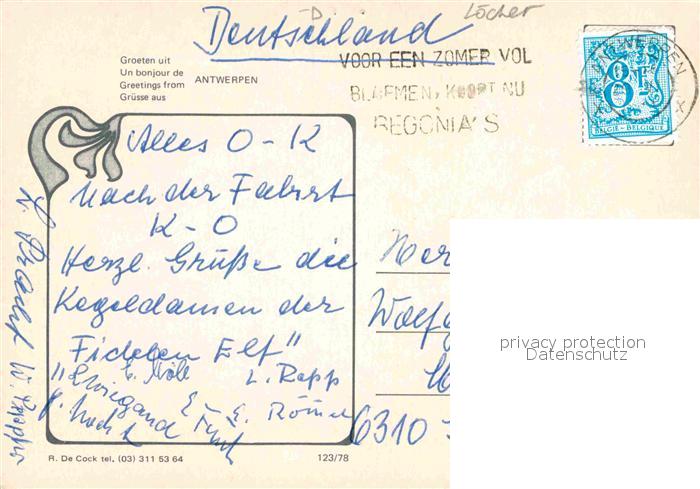 Löcher
D
Deutschland
Groeten uit
Un bonjour de
Greetings from
Grüsse aus
ANTWERPEN
VOOR EEN ZOMER VOL
BLOEMEN, KOOPT NU
BEGONIA'S
ANTWERPEN
X X
8F
BELGIE - BELGIQUE
Alles O - K
Nach der Fahrt
K - O
Herzl. Grüße die
Kegeldamen der
"Fidelen Elf"
E. Nöll L. Rapp
Wiegand E. Römer
Herr
Wolfg
6310
privacy protection
Datenschutz
R. De Cock tel. (03) 311 53 64
123/78